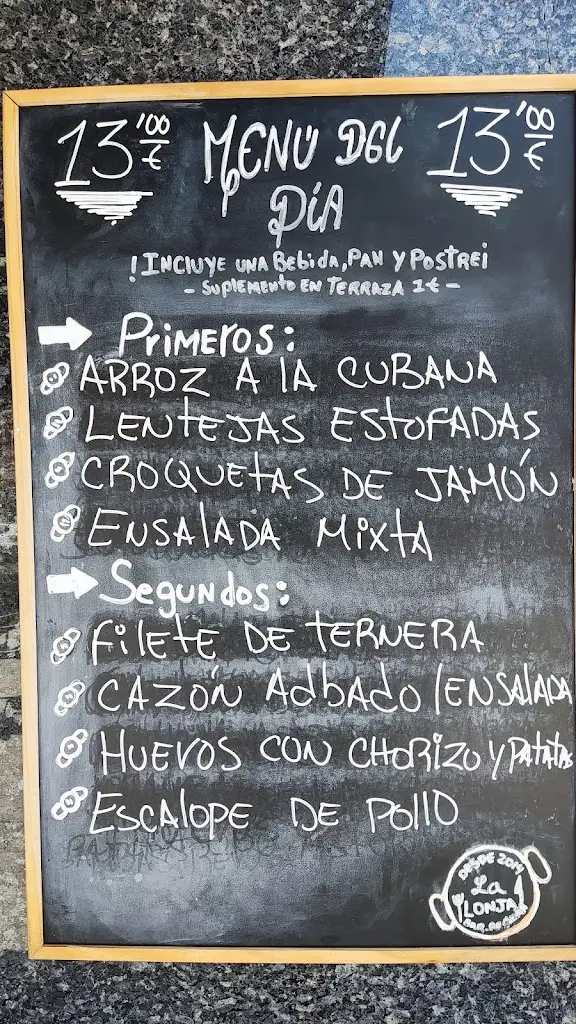 13'00 € MENÚ DEL 13'00 €
DÍA
¡INCLUYE UNA BEBIDA, PAN Y POSTRE!
- SUPLEMENTO EN TERRAZA 1€ -
PRIMEROS:
ARROZ A LA CUBANA
LENTEJAS ESTOFADAS
CROQUETAS DE JAMÓN
ENSALADA MIXTA
SEGUNDOS:
FILETE DE TERNERA
CAZÓN ADBADO/ENSALADA
HUEVOS CON CHORIZO Y PATATAS
ESCALOPE DE POLLO
DESDE 2014
La
LONJA